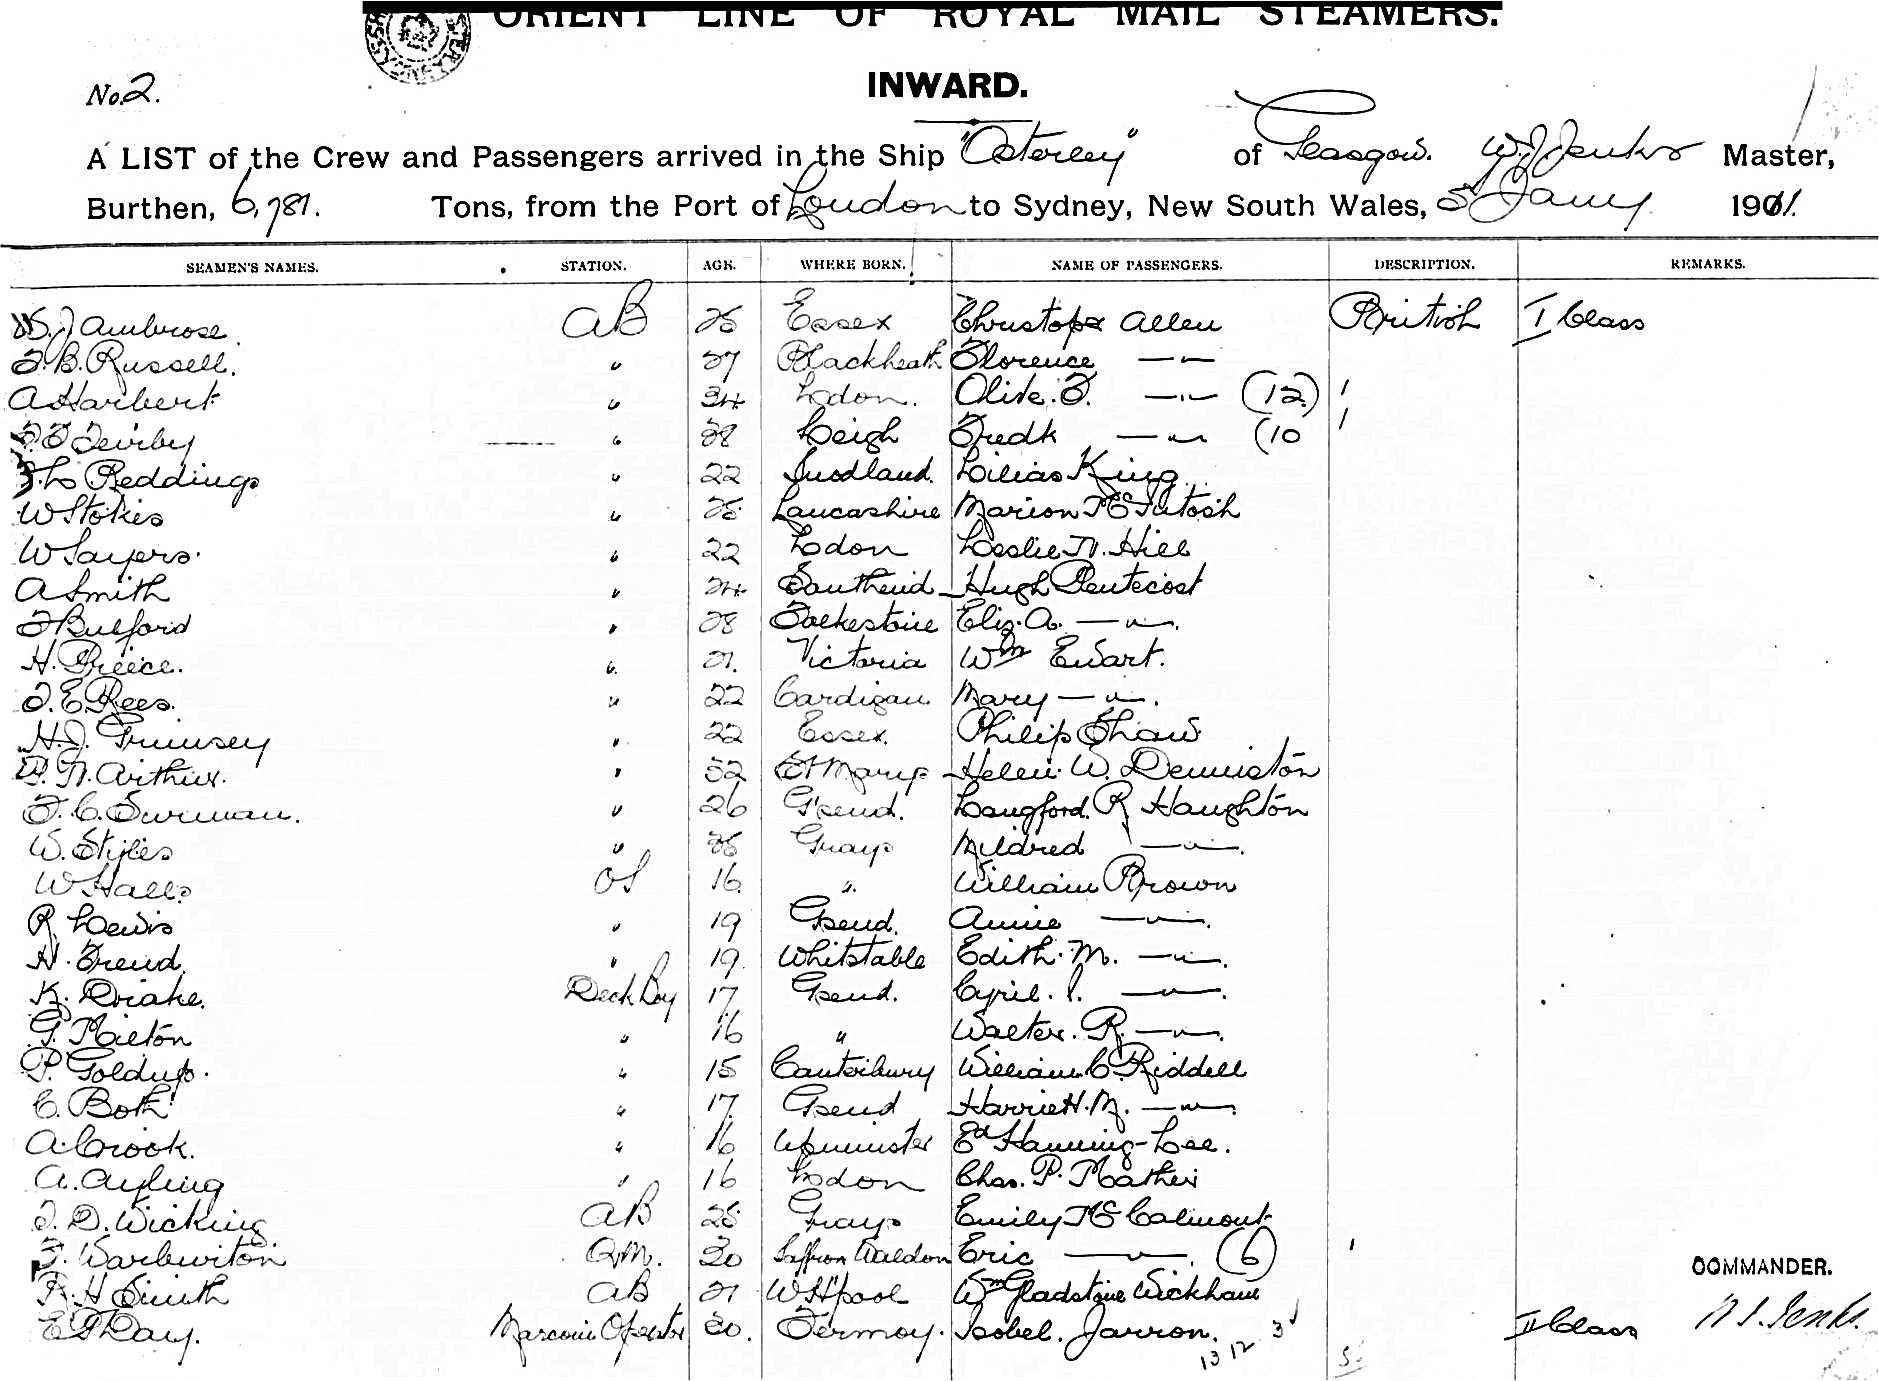 ORIENT LINE OF ROYAL MAIL STEAMERS.
No. 2.
INWARD.
A LIST of the Crew and Passengers arrived in the Ship "Osterley" of Glasgow. W J Jenks Master,
Burthen, 6,781. Tons, from the Port of London to Sydney, New South Wales, 5 Jany 1911.
SEAMEN'S NAMES. STATION. AGE. WHERE BORN. NAME OF PASSENGERS. DESCRIPTION. REMARKS.
W. J Ambrose. AB Essex Christopr Allen British I Class
F. B. Russell. " 27 Blackheath Florence — " —
A Harbert " 34 Ldon. Olive. F. — " — (12)
" 28 Leigh Fredk — " — (10
Reddings " 22 Lilias King
W Stokes " Lancashire Marion McIntosh
W Sayers. " 22 Ldon Leslie N. Hill
A Smith " 24 Southend Hugh Pentecost
F Bulford " 28 Folkestone Eliz. A. — " —.
H. Preece. " 21. Victoria Wm Ewart.
F. E Rees. " 22 Cardigan Mary — " —.
H. J. Grimsey " 22 Essex. Philip Shaw
Arthur. " 52 St Marys Helen W. Denniston
F. C. Surman. " 26 G'send. Langford. R Haughton
W. Styles " Grays Mildred — " —.
W Halls OS 16. " William Brown
R Lewis " 19 Gsend. Annie — " —.
H. Freud. " 19. Whitstable Edith. M. — " —.
K. Drake. Deck Boy 17 Gsend. Cyril. — " —.
G. Milton " 16 " Walter. R. — " —.
P. Goldup. " 15 Canterbury William C. Riddell
C. Both " 17. Gsend Harriett. M. — " —.
A. Crook. " 16 Upminster Ed Hanning-Lee.
A. Ayling " 16 Ldon Chas. P. Mather
F. D. Wicking. AB Grays Emily McCalmont
F. Warburton Q.M. 30 Saffron Waldon Eric — " —. (6)
COMMANDER.
R. H Smith AB 21 W Hpool Wm Gladstone Wickham
E Day. Marconi Operator 20. Fermoy. Isobel. Jarron. 3 II Class W J. Jenks.
13 12
5